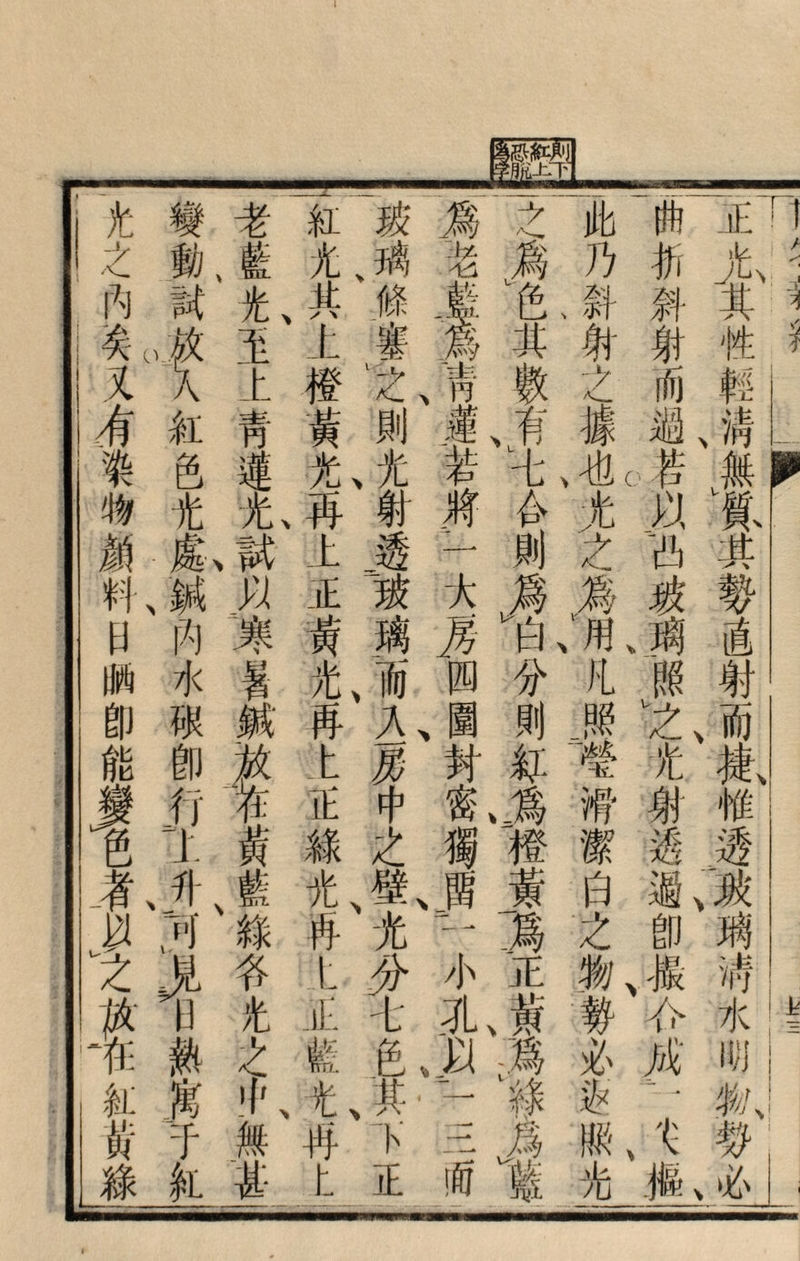 則下
紅上
恐脫
為字
正光其性輕淸無質其勢直射而捷惟透玻璃淸水明物勢必
曲折斜射而過若以凸玻璃照之光射透過卽撮合成一尖樞
此乃斜射之據也光之爲用凡照瑩滑潔白之物勢必返照光
之爲色其數有七合則爲白分則紅爲橙黃爲正黃爲綠爲藍
爲老藍爲靑蓮若將一大房四圍封密獨留一小孔以一三面
玻璃條塞之則光射透玻璃而入房中之壁光分七色其下正
紅光其上橙黃光再上正黃光再上正綠光再上正藍光再上
老藍光至上靑蓮光試以寒暑鍼放在黃藍綠各光之中無甚
變動試放入紅色光處鍼內水銀卽行上升可見日熱寓于紅
光之內矣又有染物顏料日晒卽能變色者以之放在紅黃綠